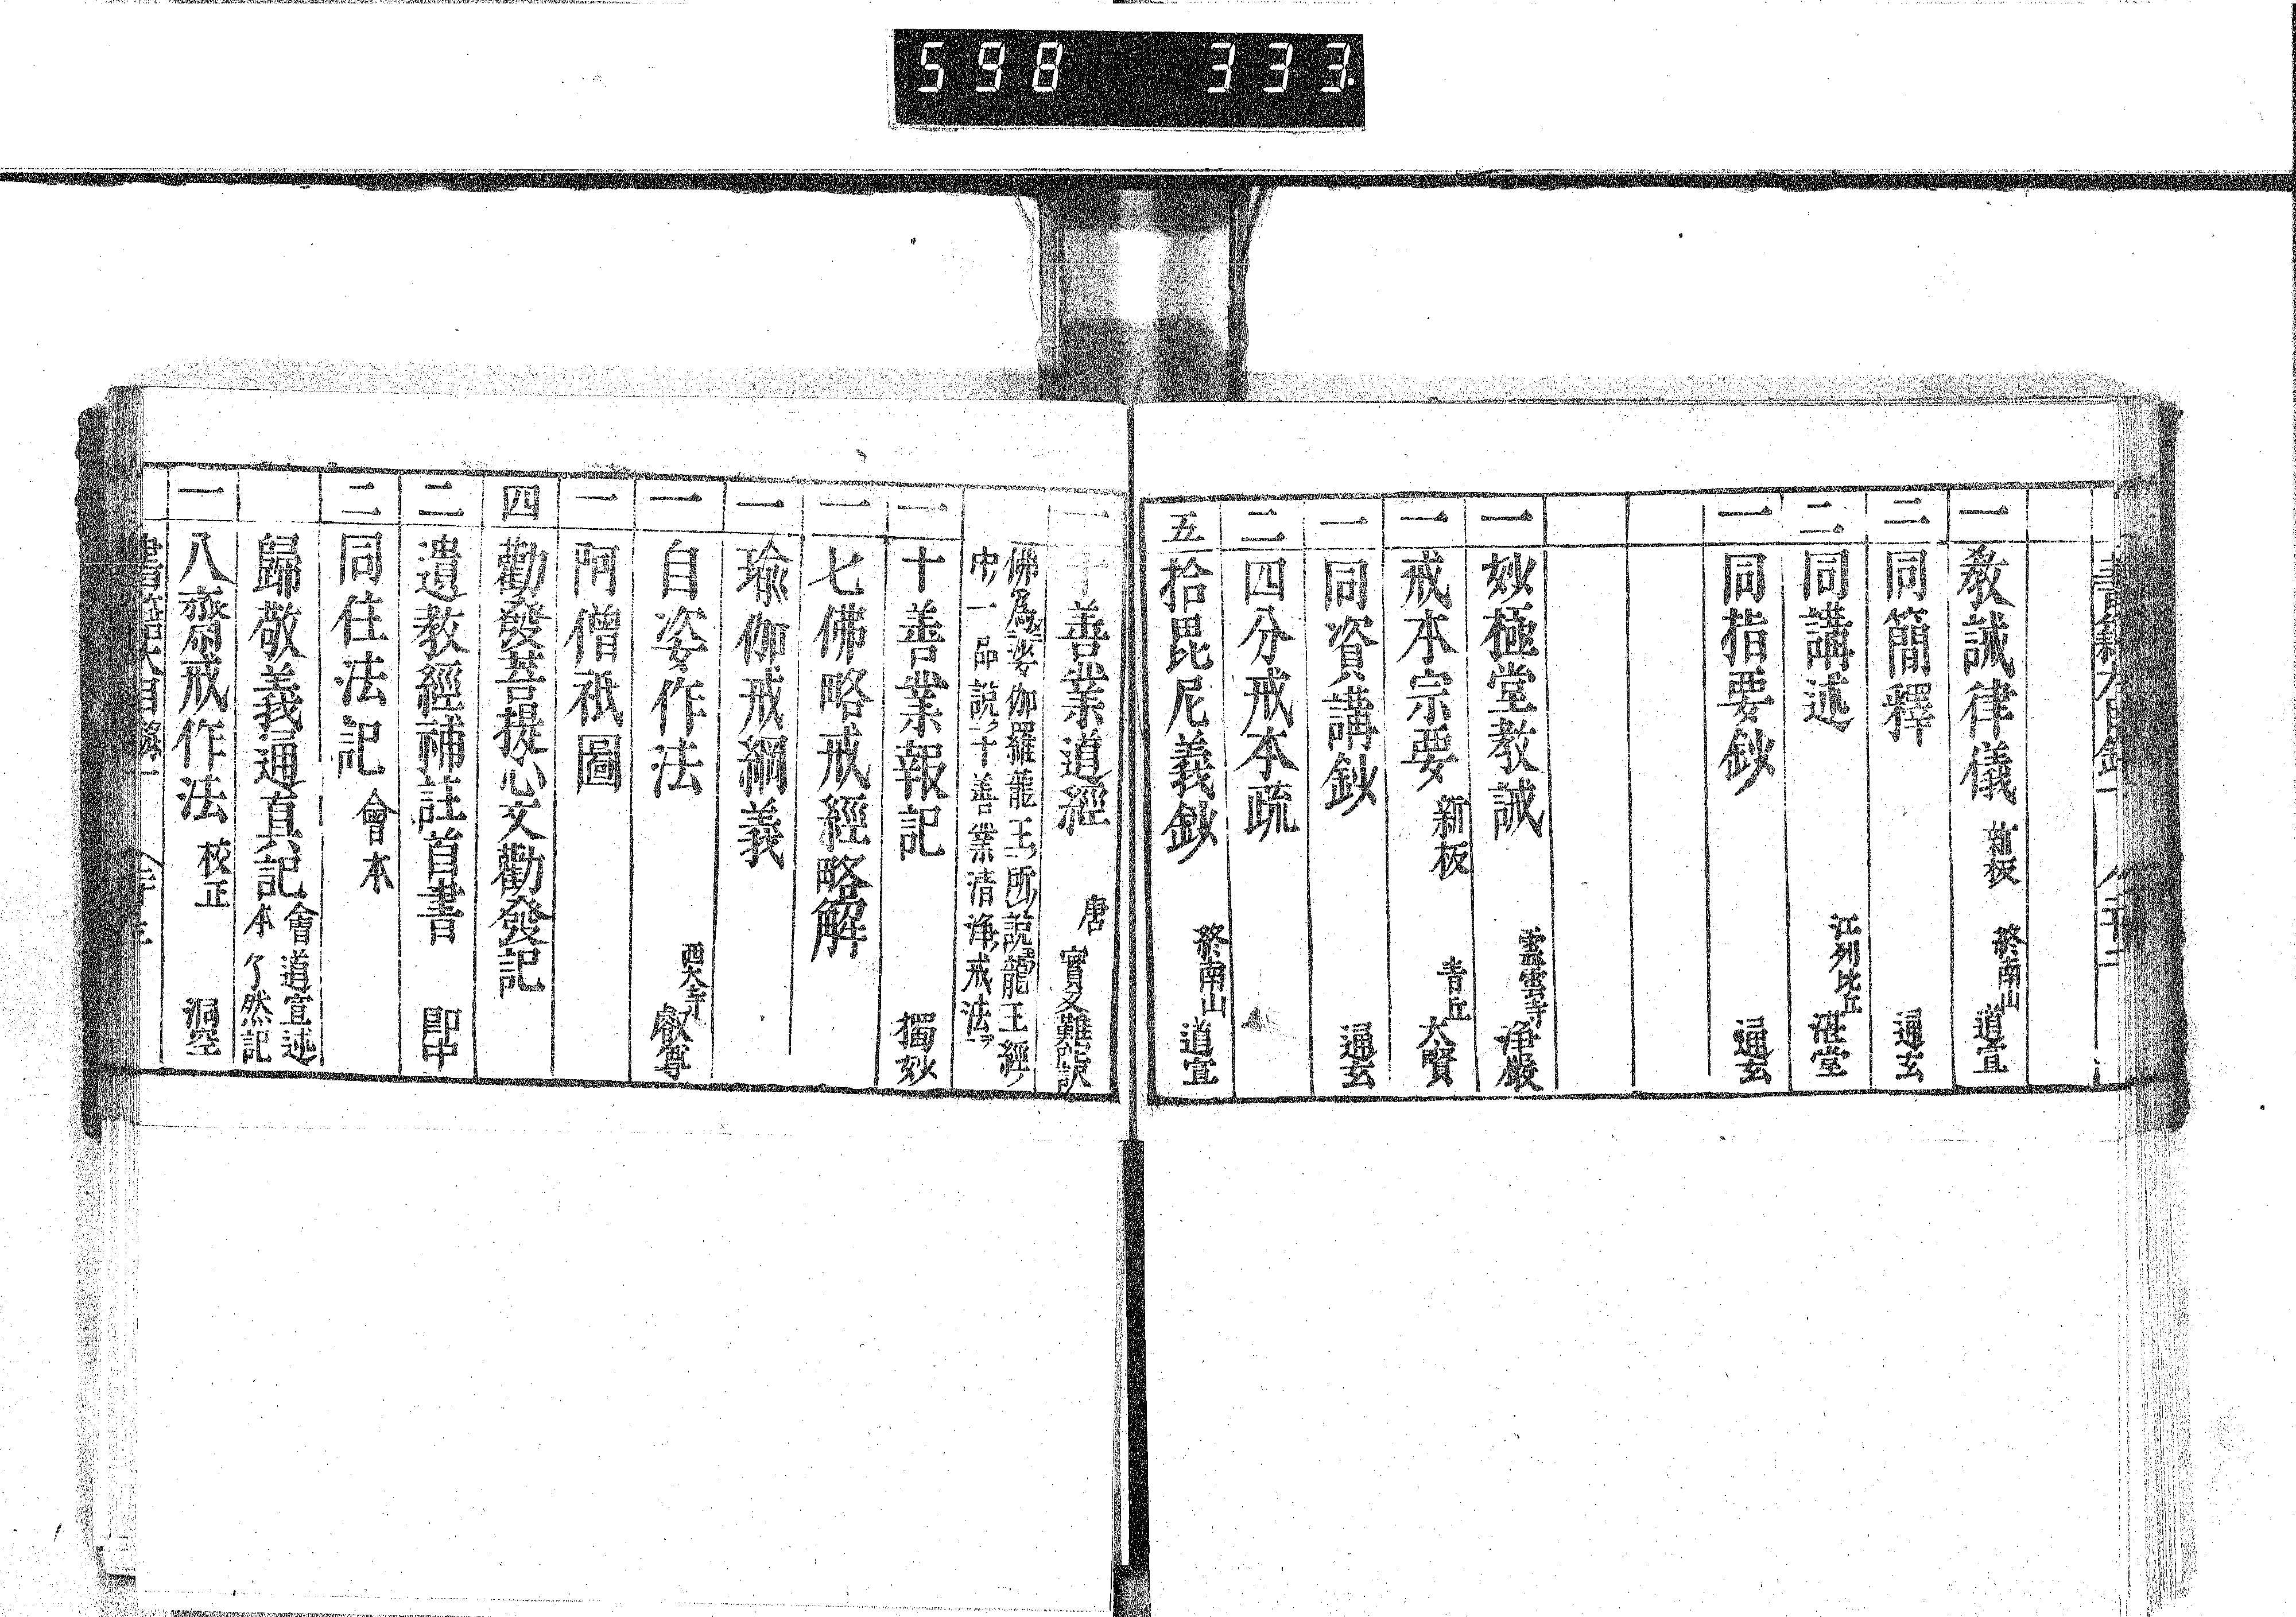 598 333
一 教誡律儀 新板 終南山 道宣
二 同簡釋 通玄
二 同講述 江列比丘 湛堂
一 同指要鈔 通玄
一 妙極堂教誡 霊雲寺 浄嚴
一 戒本宗要 新板 青丘 太賢
一 同資講鈔 通玄
二 四分戒本疏
五 拾毘尼義鈔 終南山 道宣
一 十善業道經 唐 實叉難陀訳
佛爲娑伽羅龍王所説龍王經
中一品説十善業清浄戒法
二 十善業報記 獨妙
一 七佛略戒經略解
一 瑜伽戒綱義
一 自恣作法 西大寺 叡尊
一 阿僧祇圖
四 勸發菩提心文勸發記
二 遺教經補註首書 即中
二 同住法記 會本
歸敬義通真記 會本 道宣述 了然記
一 八齋戒作法 校正 洞空